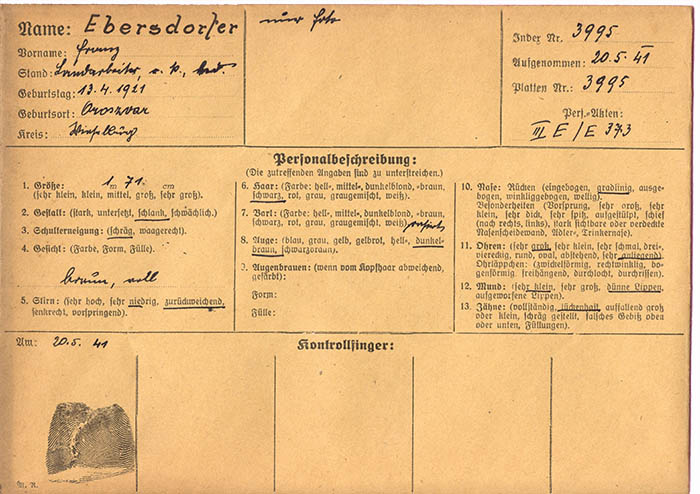 Name: Ebersdorfer
Vorname: Franz
Stand: Landarbeiter, r. k., led.
Geburtstag: 13.4.1921
Geburtsort: Oroszvar
Kreis: Wieselburg
nur Foto
Index Nr. 3995
Aufgenommen: 20.5.41
Platten Nr.: 3995
Pers.-Akten:
III E/E 373
Personalbeschreibung:
(Die zutreffenden Angaben sind zu unterstreichen.)
1. Größe: 1 m 71 cm
(sehr klein, klein, mittel, groß, sehr groß).
2. Gestalt: (stark, untersetzt, schlank, schwächlich.)
3. Schulterneigung: (schräg, waagerecht.)
4. Gesicht: (Farbe, Form, Fülle).
braun, voll
5. Stirn: (sehr hoch, sehr niedrig, zurückweichend,
senkrecht, vorspringend).
6. Haar: (Farbe: hell-, mittel-, dunkelblond, -braun,
schwarz, rot, grau, graugemischt, weiß).
7. Bart: (Farbe: hell-, mittel-, dunkelblond, -braun,
schwarz, rot, grau, graugemischt, weiß) rasiert
8. Auge: (blau, grau, gelb, gelbrot, hell-, dunkel-
braun, schwarzbraun).
9. Augenbrauen: (wenn vom Kopfhaar abweichend,
gefärbt):
Form:
Fülle:
10. Nase: Rücken (eingebogen, gradlinig, ausge-
bogen, winkliggebogen, wellig).
Besonderheiten (Vorsprung, sehr groß, sehr
klein, sehr dick, sehr spitz, aufgestülpt, schief
(nach rechts, links), stark sichtbare oder verdeckte
Nasenscheidewand, Adler-, Trinkernase).
11. Ohren: (sehr groß, sehr klein, sehr schmal, drei-,
viereckig, rund, oval, abstehend, sehr anliegend)
Ohrläppchen: (zwickelförmig, rechtwinklig, bo-
genförmig, freihängend, durchlocht, durchrissen).
12. Mund: (sehr klein, sehr groß, dünne Lippen,
aufgeworfene Lippen).
13. Zähne: (vollständig, lückenhaft, auffallend groß
oder klein, schräg gestellt, falsches Gebiß oben
oder unten, Füllungen).
Am: 20.5.41
Kontrollfinger:
M. R.